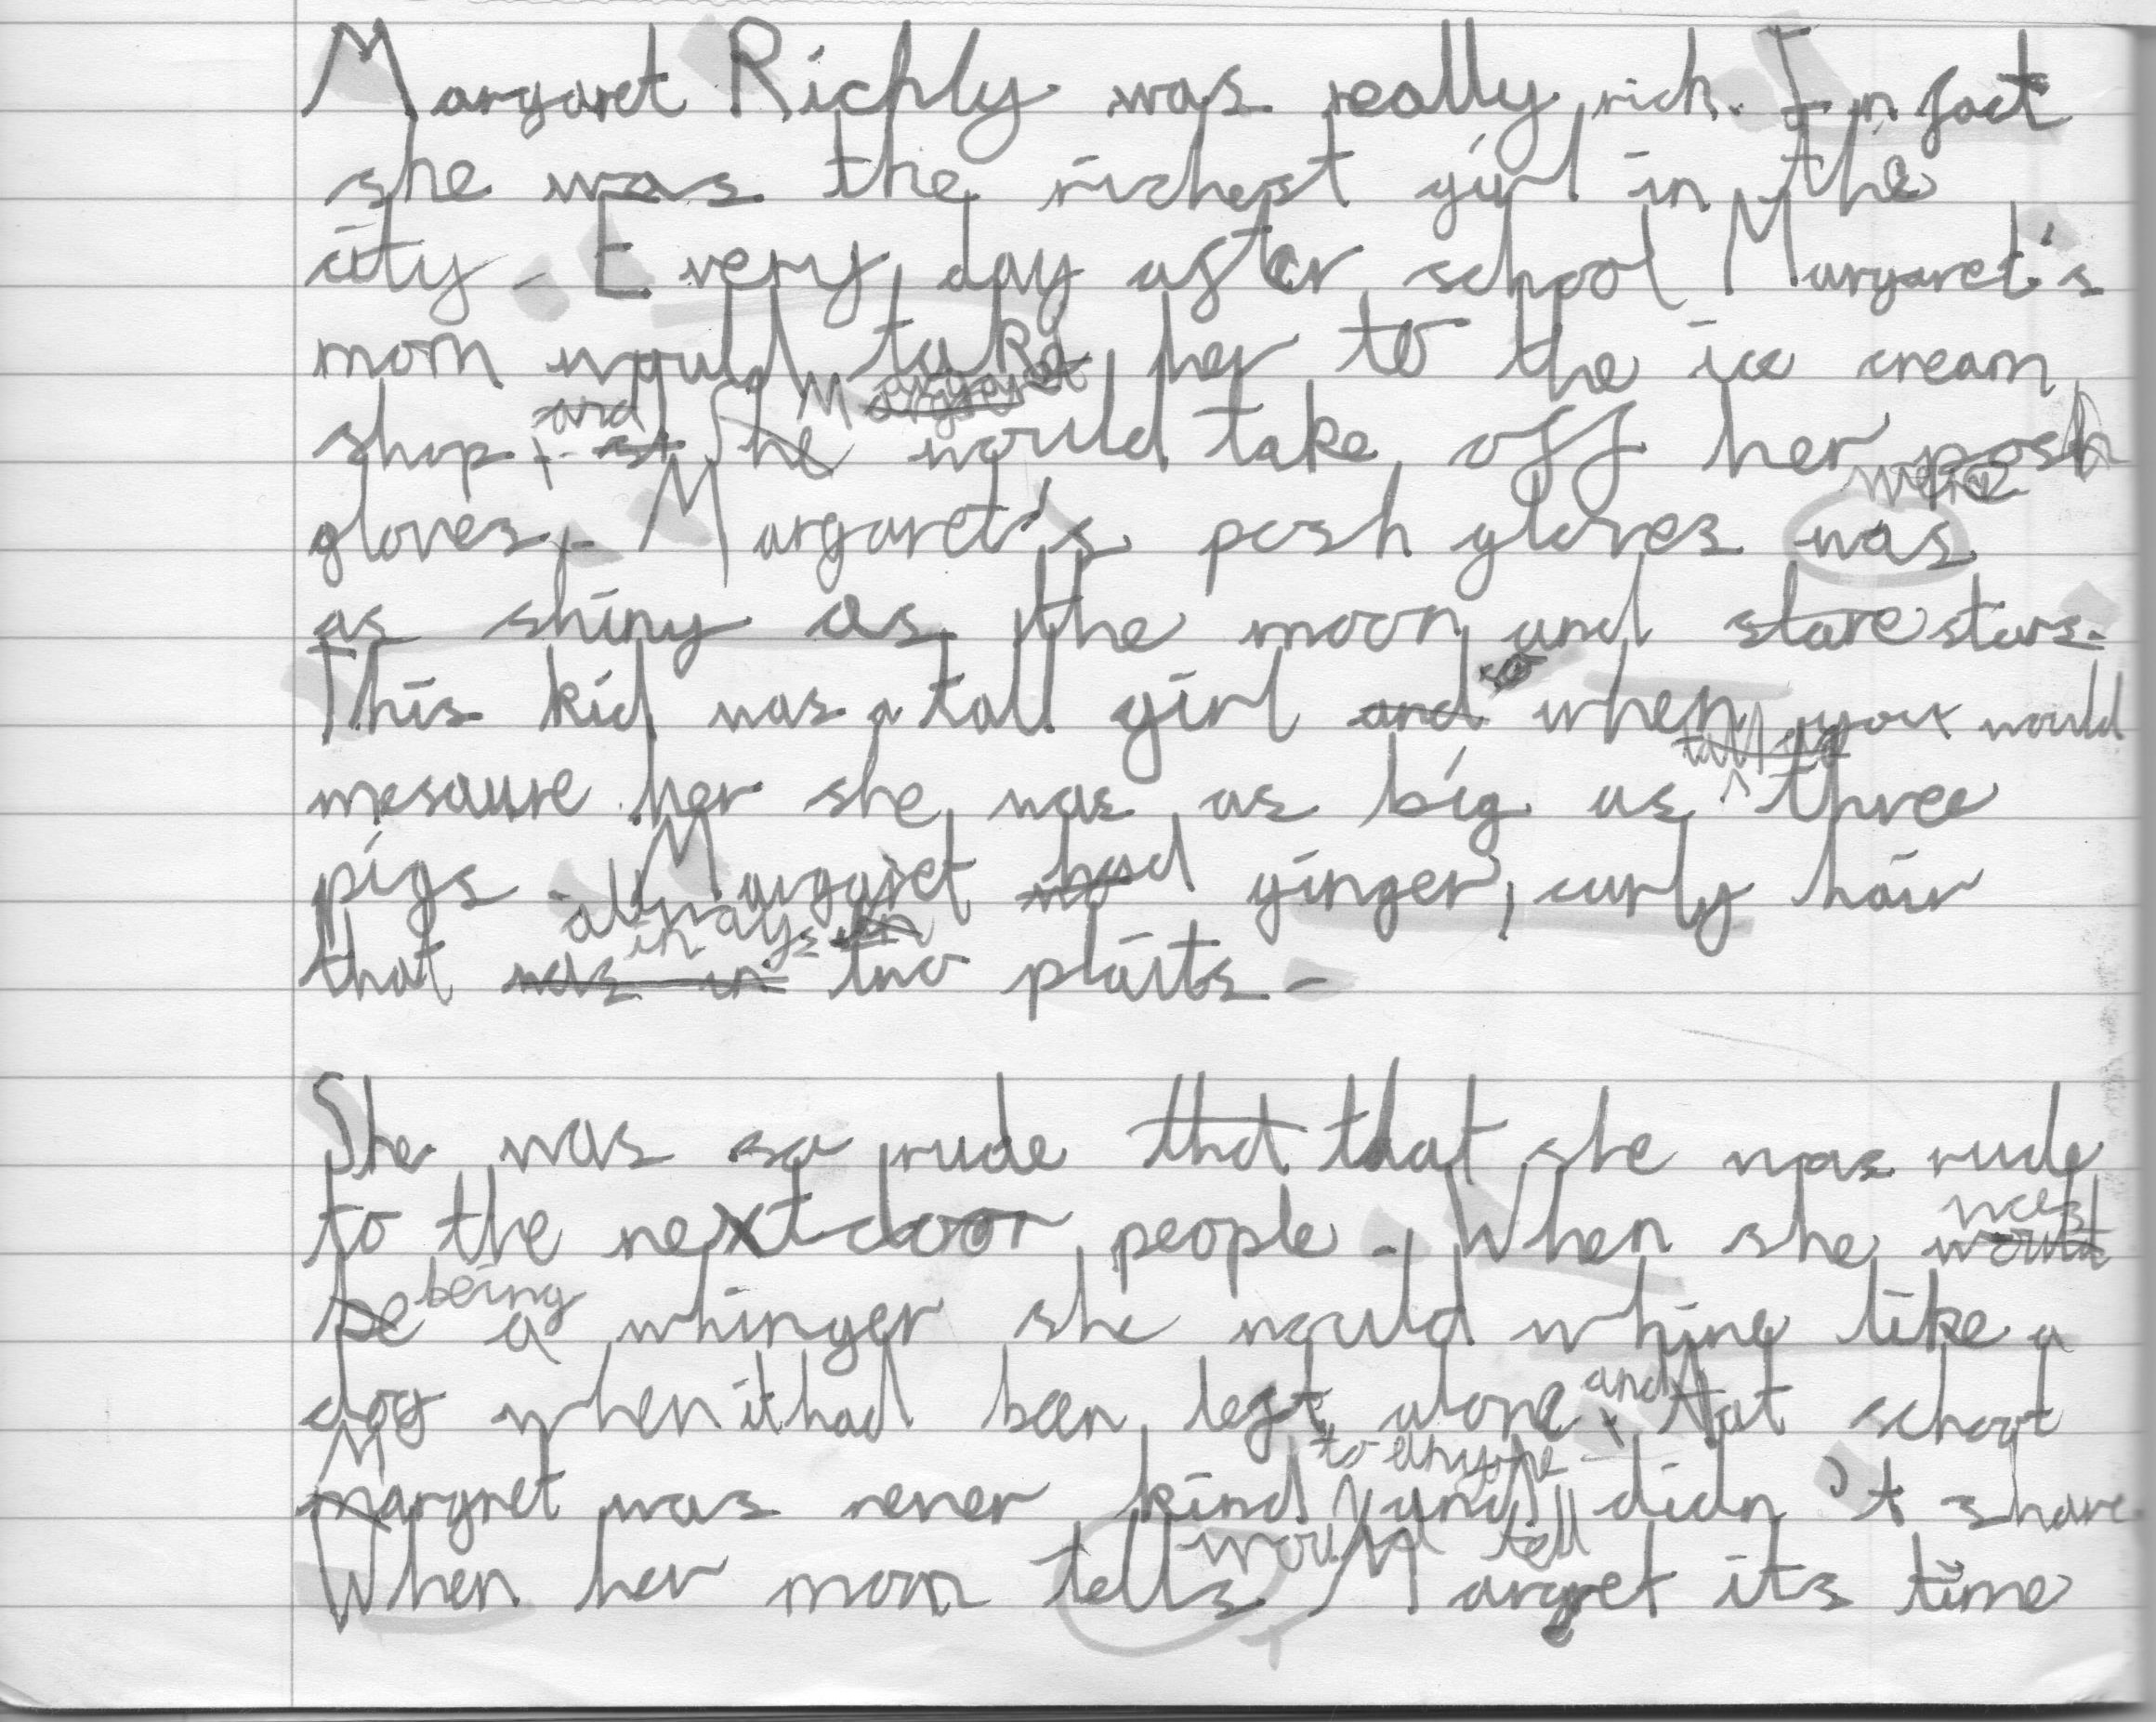 Margaret Richly was really rich. In fact
she was the richest girl in the
city. Every day after school Margaret's
mom would take her to the ice cream
shop and Margaret would take off her posh
gloves. Margaret's posh gloves was were
as shiny as the moon and stare stars.
This kid was a tall girl and so when you would
mesaure her she was as big as tall three
pigs. Margaret had ginger, curly hair
that always in two plaits.
She was so rude that that she was rude
to the nextdoor people. When she would was
be being a whinger she would whine like a
dog when it had been left alone and at school
Margret was never kind to anyone and didn't share.
When her mom tells would tell Margret its time